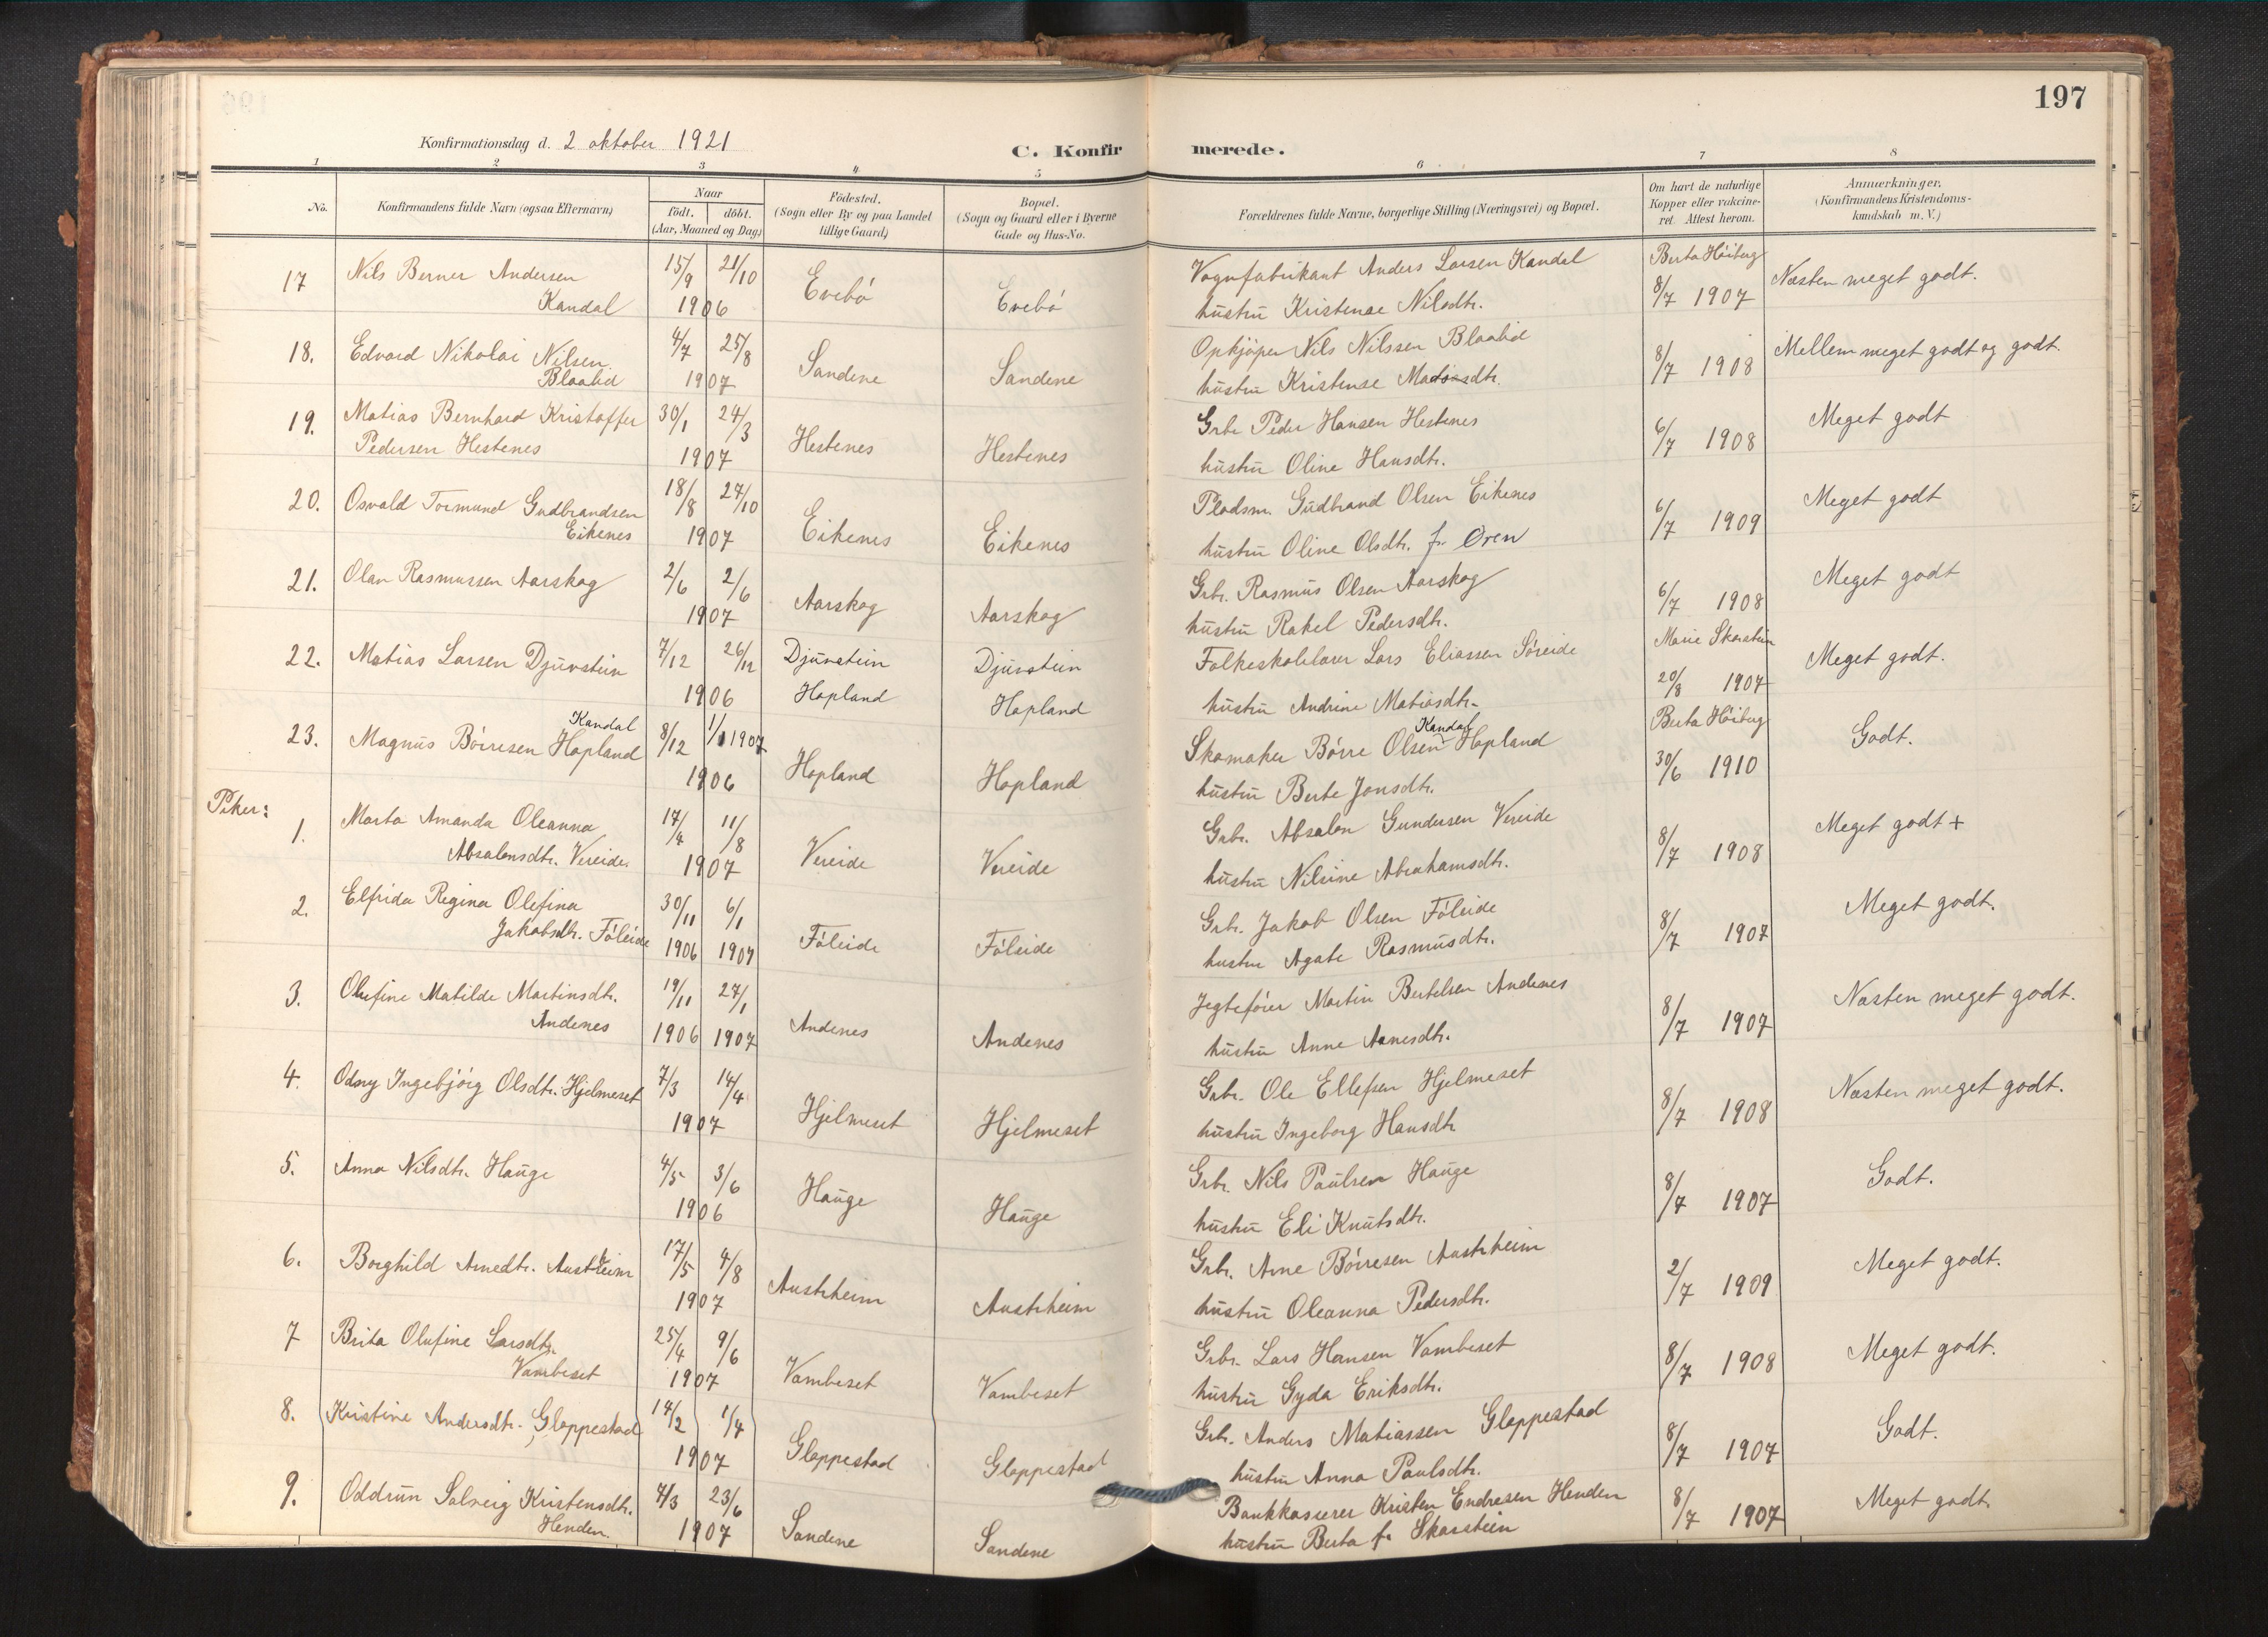 197
Konfirmationsdag d. 2 oktober 1921
C. Konfirmerede.
1 2 3 4 5 6 7 8
No.
Konfirmandens fulde Navn (ogsaa Efternavn)
Naar
födt. döbt.
(Aar, Maaned og Dag)
Födested.
(Sogn eller By og paa Landet
tillige Gaard)
Bopæl.
(Sogn og Gaard eller i Byerne
Gade og Hus-No.
Forældrenes fulde Navne, borgerlige Stilling (Næringsvei) og Bopæl.
Om havt de naturlige
Kopper eller vakcine-
ret. Attest herom.
Anmærkninger.
(Konfirmandens Kristendoms-
kundskab m. V.)
17 Nils Berner Andersen 15/9 21/10 Evebö Evebö Vognfabrikant Anders Larsen Kandal Berta Höiberg Næsten meget godt.
Kandal 1906 hustru Kristense Nilsdtr. 8/7 1907
18. Edvard Nikolai Nilsen 4/7 25/8 Sandene Sandene Opkjöper Nils Nilssen Blaabid 8/7 1908 Mellem meget godt og godt.
Blaabid 1907 hustru Kristense Madsdtr.
19. Matias Bernhard Kristoffer 30/1 24/3 Hestenes Hestenes Grbr. Peder Hansen Hestenes 6/7 1908 Meget godt
Pedersen Hestenes 1907 hustru Oline Hansdtr.
20. Osvald Tormund Gudbrandsen 18/8 27/10 Eikenes Eikenes Pladsm. Gudbrand Olsen Eikenes 6/7 1909 Meget godt
Eikenes 1907 hustru Oline Olsdtr. f. Øren
21. Olav Rasmussen Aarskog 2/6 2/6 Aarskog Aarskog Grbr. Rasmus Olsen Aarskog 6/7 1908 Meget godt
1907 hustru Rakel Pedersdtr.
22. Matias Larsen Djuvstein 7/12 26/12 Djuvstein Djuvstein Folkeskolelærer Lars Eliassen Søreide Marie Skarstein Meget godt.
1906 Hopland Hopland hustru Andrine Matiasdtr. 20/8 1907
Kandal Kandal
23. Magnus Börresen Hopland 8/12 1/1 1907 Hopland Hopland Skomaker Börre Olsen Hopland Berta Höiberg Godt.
1906 hustru Berte Jonsdtr. 30/6 1910
Piker:
1. Marta Amanda Oleanna 17/4 11/8 Vereide Vereide Grbr. Absalon Gundersen Vereide 8/7 1908 Meget godt +
Absalonsdtr. Vereide 1907 hustru Nilsine Abrahamsdtr.
2. Elfrida Regina Olefina 30/11 6/1 Föleide Föleide Grbr. Jakob Olsen Föleide 8/7 1907 Meget godt.
Jakobsdtr. Föleide 1906 1907 hustru Agate Rasmusdtr.
3. Olufine Matilde Martinsdtr. 19/11 27/1 Andenes Andenes Jegtefører Martin Bertelsen Andenes 8/7 1907 Næsten meget godt.
Andenes 1906 1907 hustru Anne Arnesdtr.
4. Odny Ingebjörg Olsdtr. Hjelmeset 7/3 14/4 Hjelmeset Hjelmeset Grbr. Ole Ellefsen Hjelmeset 8/7 1908 Næsten meget godt.
1907 hustru Ingeborg Hansdtr
5. Anna Nilsdtr. Hauge 4/5 3/6 Hauge Hauge Grbr. Nils Paulsen Hauge 8/7 1907 Godt.
1906 hustru Eli Knutsdtr.
6. Borghild Arnedtr. Austrheim 17/5 4/8 Austrheim Austrheim Grbr. Arne Börresen Austrheim 2/7 1909 Meget godt.
1907 hustru Oleanna Pedersdtr.
7 Brita Olufine Larsdtr. 25/4 9/6 Vambeset Vambeset Grbr. Lars Hansen Vambeset 8/7 1908 Meget godt.
Vambeset 1907 hustru Gyda Eriksdtr.
8. Kristine Andersdtr. Gloppestad 14/2 1/4 Gloppestad Gloppestad Grbr. Anders Matiassen Gloppestad 8/7 1907 Godt.
1907 hustru Anna Paulsdtr.
9. Oddrun Solveig Kristensdtr. 7/3 23/6 Sandene Sandene Bankkasserer Kristen Endresen Henden 8/7 1907 Meget godt
Henden. 1907 hustru Berta f. Skarstein